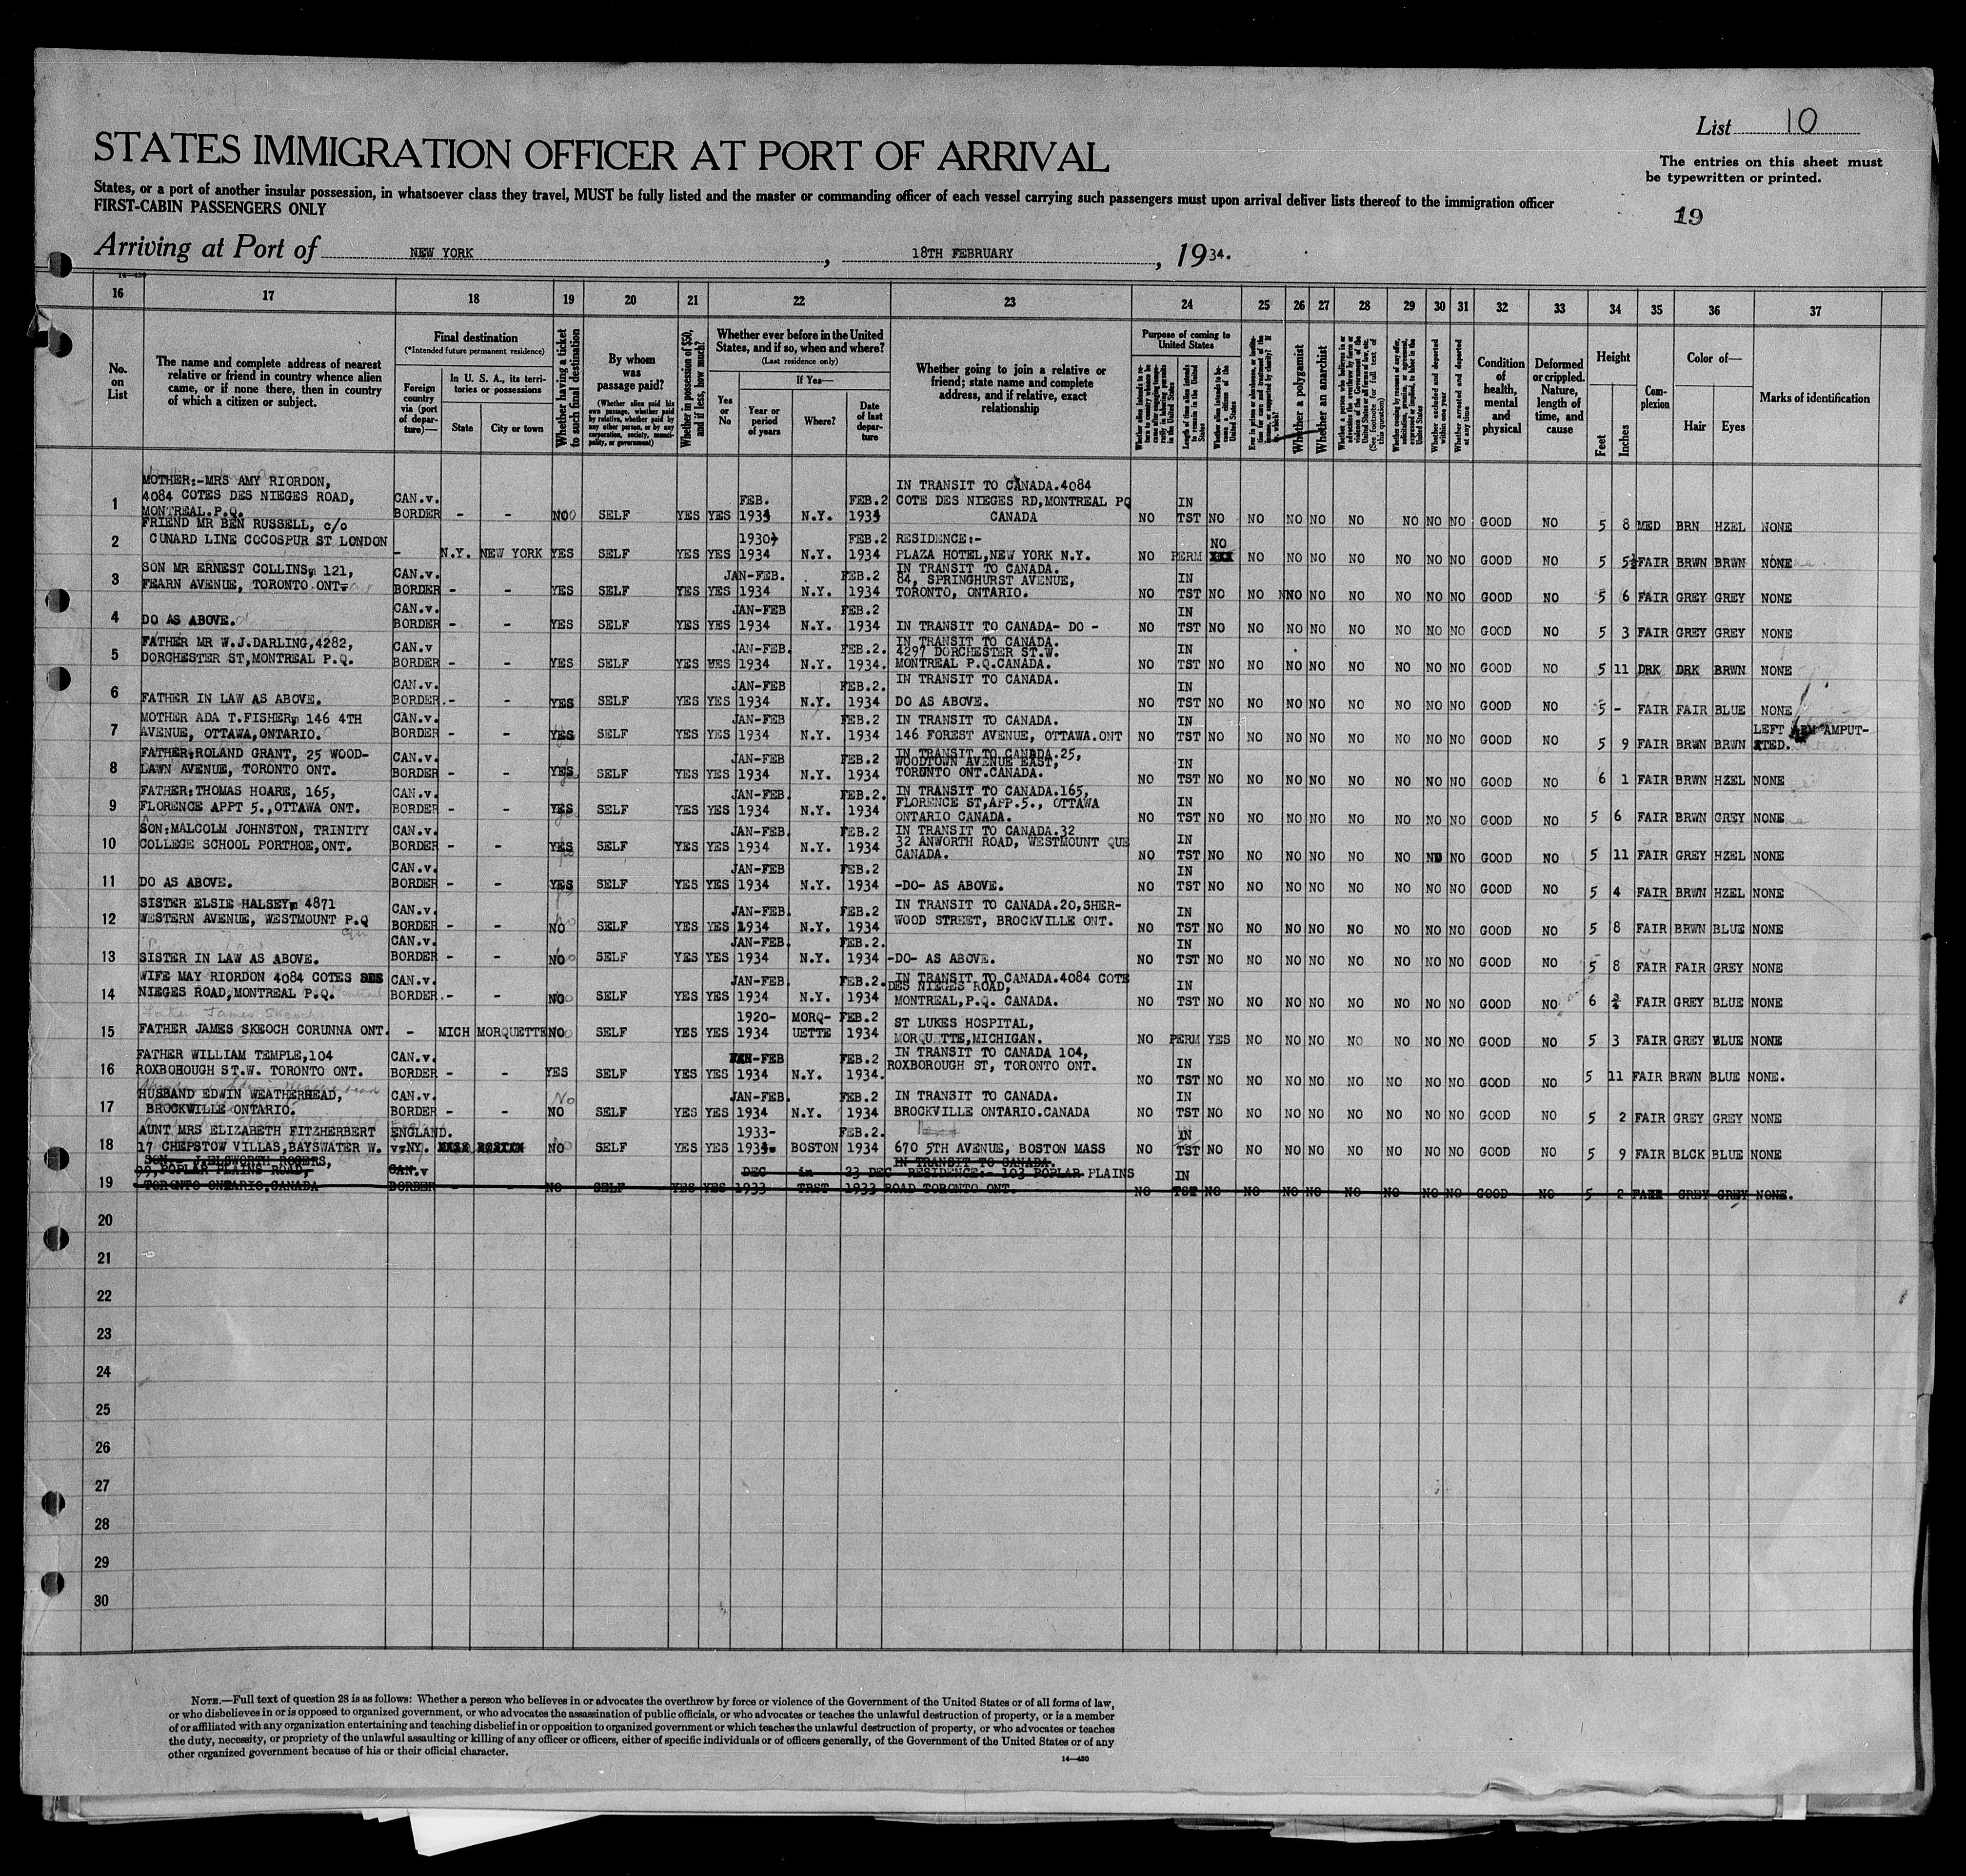 List 10
STATES IMMIGRATION OFFICER AT PORT OF ARRIVAL
The entries on this sheet must
be typewritten or printed.
States, or a port of another insular possession, in whatsoever class they travel, MUST be fully listed and the master or commanding officer of each vessel carrying such passengers must upon arrival deliver lists thereof to the immigration officer
FIRST-CABIN PASSENGERS ONLY
19
Arriving at Port of NEW YORK, 18TH FEBRUARY, 1934.
16 17 18 19 20 21 22 23 24 25 26 27 28 29 30 31 32 33 34 35 36 37
No. on List
The name and complete address of nearest relative or friend in country whence alien came, or if none there, then in country of which a citizen or subject.
Final destination
(*Intended future permanent residence)
Foreign country via (port of departure)—
In U. S. A., its territories or possessions
State
City or town
Whether having a ticket to such final destination
By whom was passage paid?
(Whether alien paid his own passage, whether paid by relative, whether paid by any other person, or by any corporation, society, municipality, or government)
Whether in possession of $50, and if less, how much?
Whether ever before in the United States, and if so, when and where?
(Last residence only)
Yes or No
If Yes—
Year or period of years
Where?
Date of last departure
Whether going to join a relative or friend; state name and complete address, and if relative, exact relationship
Purpose of coming to United States
Length of time alien intends to remain in the United States
Whether alien intends to become a citizen of the United States
Whether a polygamist
Whether an anarchist
Whether excluded and deported within one year
Whether arrested and deported at any time
Condition of health, mental and physical
Deformed or crippled. Nature, length of time, and cause
Height
Feet
Inches
Complexion
Color of—
Hair
Eyes
Marks of identification
1 MOTHER:-MRS AMY RIORDON, 4084 COTES DES NIEGES ROAD, MONTREAL.P.Q. CAN.v. BORDER - - NO SELF YES YES FEB. 1934 N.Y. FEB.2 1934 IN TRANSIT TO CANADA.4084 COTE DES NIEGES RD,MONTREAL PQ CANADA NO IN TST NO NO NO NO NO NO NO NO GOOD NO 5 8 MED BRN HZEL NONE
2 FRIEND MR BEN RUSSELL, c/o CUNARD LINE COCOSPUR ST LONDON - N.Y. NEW YORK YES SELF YES YES 1930 1934 N.Y. FEB.2 1934 RESIDENCE:- PLAZA HOTEL,NEW YORK N.Y. NO PERM NO NO NO NO NO NO NO NO GOOD NO 5 5½ FAIR BRWN BRWN NONE
3 SON MR ERNEST COLLINS 121, FEARN AVENUE, TORONTO ONT CAN.v. BORDER - - YES SELF YES YES JAN-FEB. 1934 N.Y. FEB.2 1934 IN TRANSIT TO CANADA. 84, SPRINGHURST AVENUE, TORONTO, ONTARIO. NO IN TST NO NO NO NO NO NO NO NO GOOD NO 5 6 FAIR GREY GREY NONE
4 DO AS ABOVE. CAN.v. BORDER - - YES SELF YES YES JAN-FEB 1934 N.Y. FEB.2 1934 IN TRANSIT TO CANADA- DO - NO IN TST NO NO NO NO NO NO NO NO GOOD NO 5 3 FAIR GREY GREY NONE
5 FATHER MR W.J.DARLING,4282, DORCHESTER ST,MONTREAL P.Q. CAN.v BORDER - - YES SELF YES YES JAN-FEB. 1934 N.Y. FEB.2. 1934. IN TRANSIT TO CANADA. 4297 DORCHESTER ST.W. MONTREAL P.Q.CANADA. NO IN TST NO NO NO NO NO NO NO NO GOOD NO 5 11 DRK DRK BRWN NONE
6 FATHER IN LAW AS ABOVE. CAN.v. BORDER. - - YES SELF YES YES JAN-FEB 1934 N.Y. FEB.2. 1934 IN TRANSIT TO CANADA. DO AS ABOVE. NO IN TST NO NO NO NO NO NO NO NO GOOD NO 5 - FAIR FAIR BLUE NONE
7 MOTHER ADA T.FISHER 146 4TH AVENUE, OTTAWA,ONTARIO. CAN.v. BORDER - - YES SELF YES YES JAN-FEB 1934 N.Y. FEB.2 1934 IN TRANSIT TO CANADA. 146 FOREST AVENUE, OTTAWA.ONT NO IN TST NO NO NO NO NO NO NO NO GOOD NO 5 9 FAIR BRWN BRWN LEFT ARM AMPUT-ATED.
8 FATHER:ROLAND GRANT, 25 WOOD-LAWN AVENUE, TORONTO ONT. CAN.v. BORDER - - YES SELF YES YES JAN-FEB 1934 N.Y. FEB.2 1934 IN TRANSIT TO CANADA.25, WOODTOWN AVENUE EAST, TORONTO ONT.CANADA. NO IN TST NO NO NO NO NO NO NO NO GOOD NO 6 1 FAIR BRWN HZEL NONE
9 FATHER:THOMAS HOARE, 165, FLORENCE APPT 5.,OTTAWA ONT. CAN.v. BORDER - - YES SELF YES YES JAN-FEB. 1934 N.Y. FEB.2. 1934 IN TRANSIT TO CANADA.165, FLORENCE ST,APP.5., OTTAWA ONTARIO CANADA. NO IN TST NO NO NO NO NO NO NO NO GOOD NO 5 6 FAIR BRWN GREY NONE
10 SON:MALCOLM JOHNSTON, TRINITY COLLEGE SCHOOL PORTHOE,ONT. CAN.v. BORDER - - YES SELF YES YES JAN-FEB. 1934 N.Y. FEB.2 1934 IN TRANSIT TO CANADA.32 32 ANWORTH ROAD, WESTMOUNT QUE CANADA. NO IN TST NO NO NO NO NO NO NO NO GOOD NO 5 11 FAIR GREY HZEL NONE
11 DO AS ABOVE. CAN.v. BORDER - - YES SELF YES YES JAN-FEB 1934 N.Y. FEB.2 1934 -DO- AS ABOVE. NO IN TST NO NO NO NO NO NO NO NO GOOD NO 5 4 FAIR BRWN HZEL NONE
12 SISTER ELSIE HALSEY 4871 WESTERN AVENUE, WESTMOUNT P.Q CAN.v. BORDER - - NO SELF YES YES JAN-FEB. 1934 N.Y. FEB.2 1934 IN TRANSIT TO CANADA.20,SHER-WOOD STREET, BROCKVILLE ONT. NO IN TST NO NO NO NO NO NO NO NO GOOD NO 5 8 FAIR BRWN BLUE NONE
13 SISTER IN LAW AS ABOVE. CAN.v. BORDER - - NO SELF YES YES JAN-FEB. 1934 N.Y. FEB.2. 1934 -DO- AS ABOVE. NO IN TST NO NO NO NO NO NO NO NO GOOD NO 5 8 FAIR FAIR GREY NONE
14 WIFE MAY RIORDON 4084 COTES DES NIEGES ROAD,MONTREAL P.Q. CAN.v. BORDER. - - NO SELF YES YES JAN-FEB 1934 N.Y. FEB.2. 1934 IN TRANSIT TO CANADA.4084 COTE DES NIEGES ROAD, MONTREAL,P.Q. CANADA. NO IN TST NO NO NO NO NO NO NO NO GOOD NO 6 ¾ FAIR GREY BLUE NONE
father James Skeoch
15 FATHER JAMES SKEOCH CORUNNA ONT. - MICH MORQUETTE NO SELF YES YES 1920- 1934 MORQ-UETTE FEB.2 1934 ST LUKES HOSPITAL, MORQU TTE,MICHIGAN. NO PERM YES NO NO NO NO NO NO NO GOOD NO 5 3 FAIR GREY BLUE NONE
16 FATHER WILLIAM TEMPLE,104 ROXBOROUGH ST.W. TORONTO ONT. CAN.v. BORDER - - YES SELF YES YES JAN-FEB 1934 N.Y. FEB.2 1934. IN TRANSIT TO CANADA 104, ROXBOROUGH ST, TORONTO ONT. NO IN TST NO NO NO NO NO NO NO NO GOOD NO 5 11 FAIR BRWN BLUE NONE.
17 HUSBAND EDWIN WEATHERHEAD, BROCKVILLE ONTARIO. CAN.v. BORDER - - No NO SELF YES YES JAN-FEB. 1934 N.Y. FEB.2 1934 IN TRANSIT TO CANADA. BROCKVILLE ONTARIO.CANADA NO IN TST NO NO NO NO NO NO NO NO GOOD NO 5 2 FAIR GREY GREY NONE
18 AUNT MRS ELIZABETH FITZHERBERT 17 CHEPSTOW VILLAS,BAYSWATER W. ENGLAND. v-NY. MASS BOSTON NO SELF YES YES 1933- 1934 BOSTON FEB.2. 1934 670 5TH AVENUE, BOSTON MASS NO IN TST NO NO NO NO NO NO NO NO GOOD NO 5 9 FAIR BLCK BLUE NONE
19 SON - J.ELSWORTH ROGERS, 99,POPLAR PLAINS ROAD, TORONTO ONTARIO,CANADA CAN.v BORDER - - NO SELF YES YES DEC 1933 in TRST 23 DEC 1933 IN TRANSIT TO CANADA. RESIDENCE:- 103 POPLAR PLAINS ROAD TORONTO ONT. NO IN TST NO NO NO NO NO NO NO NO GOOD NO 5 2 FAIR GREY GREY NONE.
20
21
22
23
24
25
26
27
28
29
30
NOTE.—Full text of question 28 is as follows: Whether a person who believes in or advocates the overthrow by force or violence of the Government of the United States or of all forms of law,
or who disbelieves in or is opposed to organized government, or who advocates the assassination of public officials, or who advocates or teaches the unlawful destruction of property, or is a member
of or affiliated with any organization entertaining and teaching disbelief in or opposition to organized government or which teaches the unlawful destruction of property, or who advocates or teaches
the duty, necessity, or propriety of the unlawful assaulting or killing of any officer or officers, either of specific individuals or of officers generally, of the Government of the United States or of any
other organized government because of his or their official character.
14—430